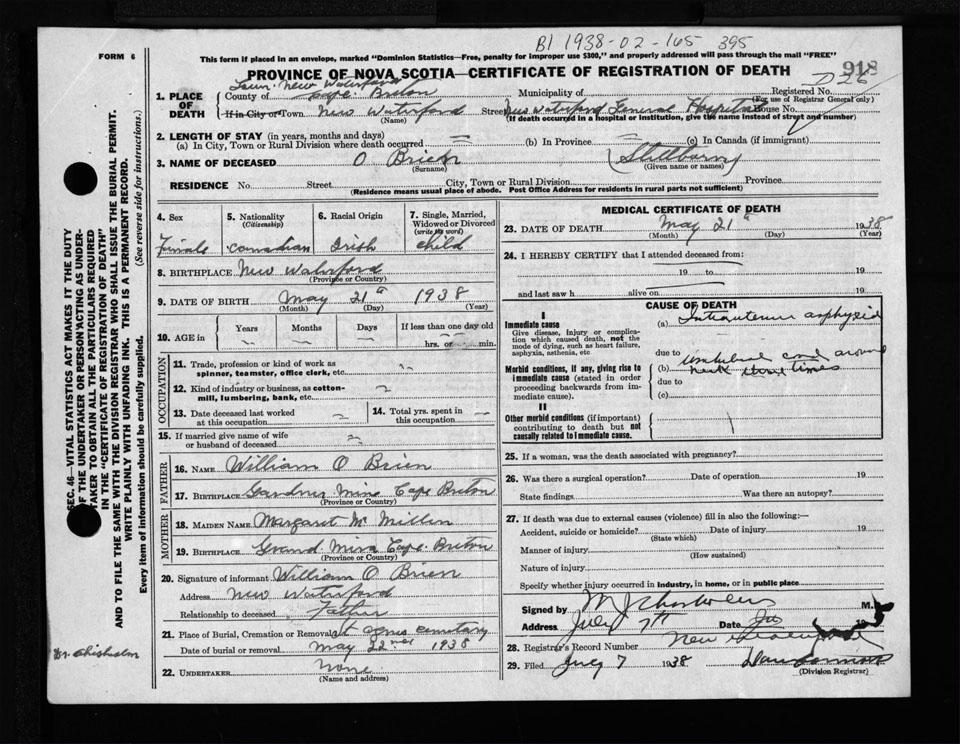 B1 1938-02-165 395
FORM 6
This form if placed in an envelope, marked "Dominion Statistics—Free, penalty for improper use $300," and properly addressed will pass through the mail "FREE"
918
PROVINCE OF NOVA SCOTIA—CERTIFICATE OF REGISTRATION OF DEATH
1. PLACE OF DEATH
Town New Waterford
County of Cape Breton Municipality of Registered No.
(For use of Registrar General only)
If in City or Town New Waterford Street New Waterford General Hospital House No.
(Name) (If death occurred in a hospital or institution, give the name instead of street and number)
2. LENGTH OF STAY (in years, months and days)
(a) In City, Town or Rural Division where death occurred (b) In Province (c) In Canada (if immigrant)
3. NAME OF DECEASED O Brien (Stillborn)
(Surname) (Given name or names)
RESIDENCE No. Street City, Town or Rural Division Province
(Residence means usual place of abode. Post Office Address for residents in rural parts not sufficient)
4. Sex Female
5. Nationality (Citizenship) Canadian
6. Racial Origin Irish
7. Single, Married, Widowed or Divorced (write the word) child
8. BIRTHPLACE New Waterford
(Province or Country)
9. DATE OF BIRTH May 21st 1938
(Month) (Day) (Year)
10. AGE in Years Months Days If less than one day old
hrs. or min.
OCCUPATION
11. Trade, profession or kind of work as spinner, teamster, office clerk, etc.
12. Kind of industry or business, as cotton-mill, lumbering, bank, etc.
13. Date deceased last worked at this occupation
14. Total yrs. spent in this occupation
15. If married give name of wife or husband of deceased
FATHER
16. NAME William O Brien
17. BIRTHPLACE Gardner Mine Cape Breton
(Province or Country)
MOTHER
18. MAIDEN NAME Margaret Mc Millin
19. BIRTHPLACE Grand Mira Cape Breton
(Province or Country)
20. Signature of informant William O Brien
Address New Waterford
Relationship to deceased Father
21. Place of Burial, Cremation or Removal St Agnes cemetary
Date of burial or removal May 22nd 1938
22. UNDERTAKER None
(Name and address)
MEDICAL CERTIFICATE OF DEATH
23. DATE OF DEATH May 21st 1938
(Month) (Day) (Year)
24. I HEREBY CERTIFY that I attended deceased from:
19 to 19
and last saw h alive on 19
CAUSE OF DEATH
I
Immediate cause
Give disease, injury or complication which caused death, not the mode of dying, such as heart failure, asphyxia, asthenia, etc
(a) Intrauterine asphyxia
due to
Morbid conditions, if any, giving rise to immediate cause (stated in order proceeding backwards from immediate cause).
(b) umbilical cord around neck times
due to
(c)
II
Other morbid conditions (if important) contributing to death but not causally related to immediate cause.
25. If a woman, was the death associated with pregnancy?
26. Was there a surgical operation? Date of operation 19
State findings Was there an autopsy?
27. If death was due to external causes (violence) fill in also the following:—
Accident, suicide or homicide? Date of injury 19
(State which)
Manner of injury
(How sustained)
Nature of injury
Specify whether injury occurred in industry, in home, or in public place
Signed by M.
Address July 7th Date
28. Registrar's Record Number New
29. Filed July 7 1938
(Division Registrar)
SEC. 46—VITAL STATISTICS ACT MAKES IT THE DUTY
OF THE UNDERTAKER OR PERSON ACTING AS UNDER-
TAKER TO OBTAIN ALL THE PARTICULARS REQUIRED
IN THE "CERTIFICATE OF REGISTRATION OF DEATH"
AND TO FILE THE SAME WITH THE DIVISION REGISTRAR WHO SHALL ISSUE THE BURIAL PERMIT.
WRITE PLAINLY WITH UNFADING INK. THIS IS A PERMANENT RECORD.
Every item of information should be carefully supplied. (See reverse side for instructions.)
Dr. Chisholm